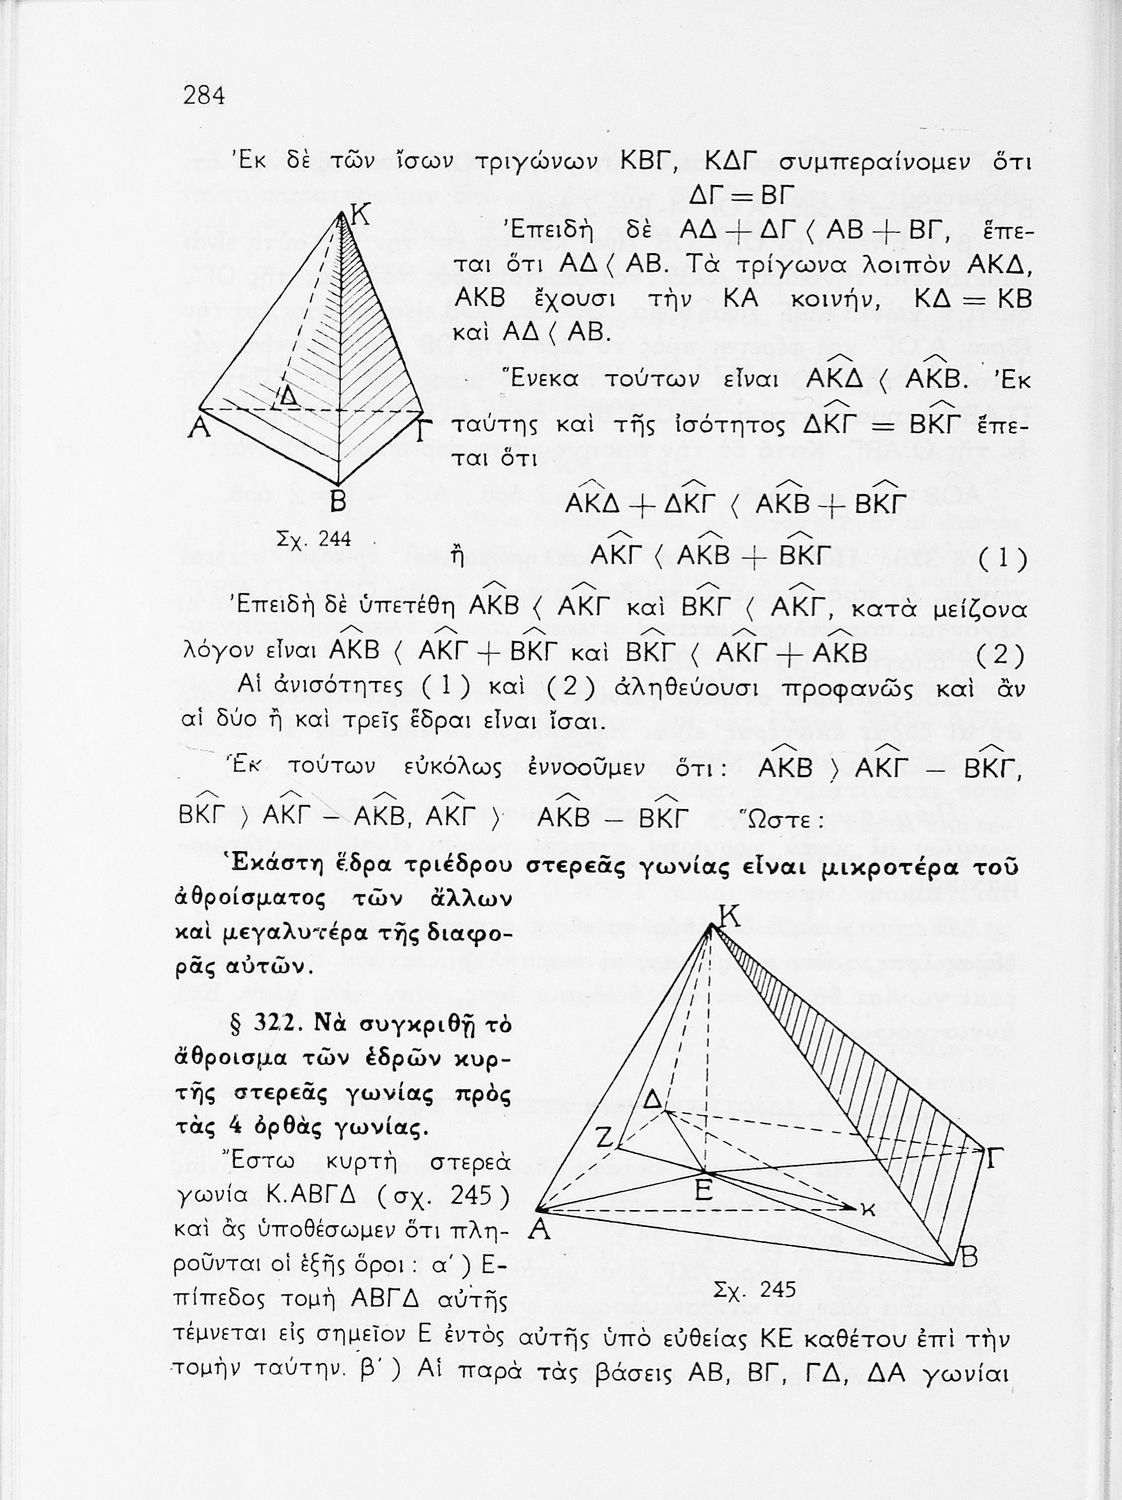 284
Ἐκ δὲ τῶν ἴσων τριγώνων ΚΒΓ, ΚΔΓ συμπεραίνομεν ὅτι
ΔΓ = ΒΓ
Ἐπειδὴ δὲ ΑΔ + ΔΓ ⟨ ΑΒ + ΒΓ, ἕπε-
ται ὅτι ΑΔ ⟨ ΑΒ. Τὰ τρίγωνα λοιπὸν ΑΚΔ,
ΑΚΒ ἔχουσι τὴν ΚΑ κοινήν, ΚΔ = ΚΒ
καὶ ΑΔ ⟨ ΑΒ.
Ἕνεκα τούτων εἶναι ΑΚ̂Δ ⟨ ΑΚ̂Β. Ἐκ
ταύτης καὶ τῆς ἰσότητος ΔΚ̂Γ = ΒΚ̂Γ ἕπε-
ται ὅτι
ΑΚ̂Δ + ΔΚ̂Γ ⟨ ΑΚ̂Β + ΒΚ̂Γ
ἢ ΑΚ̂Γ ⟨ ΑΚ̂Β + ΒΚ̂Γ (1)
Κ
Δ
Α
Γ
Β
Σχ. 244
Ἐπειδὴ δὲ ὑπετέθη ΑΚ̂Β ⟨ ΑΚ̂Γ καὶ ΒΚ̂Γ ⟨ ΑΚ̂Γ, κατὰ μείζονα
λόγον εἶναι ΑΚ̂Β ⟨ ΑΚ̂Γ + ΒΚ̂Γ καὶ ΒΚ̂Γ ⟨ ΑΚ̂Γ + ΑΚ̂Β (2)
Αἱ ἀνισότητες (1) καὶ (2) ἀληθεύουσι προφανῶς καὶ ἂν
αἱ δύο ἢ καὶ τρεῖς ἕδραι εἶναι ἴσαι.
Ἐκ τούτων εὐκόλως ἐννοοῦμεν ὅτι: ΑΚ̂Β ⟩ ΑΚ̂Γ − ΒΚ̂Γ,
ΒΚ̂Γ ⟩ ΑΚ̂Γ − ΑΚ̂Β, ΑΚ̂Γ ⟩ ΑΚ̂Β − ΒΚ̂Γ Ὥστε:
Ἑκάστη ἕδρα τριέδρου στερεᾶς γωνίας εἶναι μικροτέρα τοῦ
ἀθροίσματος τῶν ἄλλων
καὶ μεγαλυτέρα τῆς διαφο-
ρᾶς αὐτῶν.
§ 322. Νὰ συγκριθῇ τὸ
ἄθροισμα τῶν ἑδρῶν κυρ-
τῆς στερεᾶς γωνίας πρὸς
τὰς 4 ὀρθὰς γωνίας.
Ἔστω κυρτὴ στερεὰ
γωνία Κ.ΑΒΓΔ (σχ. 245)
καὶ ἂς ὑποθέσωμεν ὅτι πλη-
ροῦνται οἱ ἑξῆς ὅροι: α΄) Ἐ-
πίπεδος τομὴ ΑΒΓΔ αὐτῆς
Κ
Δ
Ζ
Γ
Ε
κ
Α
Β
Σχ. 245
τέμνεται εἰς σημεῖον Ε ἐντὸς αὐτῆς ὑπὸ εὐθείας ΚΕ καθέτου ἐπὶ τὴν
τομὴν ταύτην. β΄) Αἱ παρὰ τὰς βάσεις ΑΒ, ΒΓ, ΓΔ, ΔΑ γωνίαι